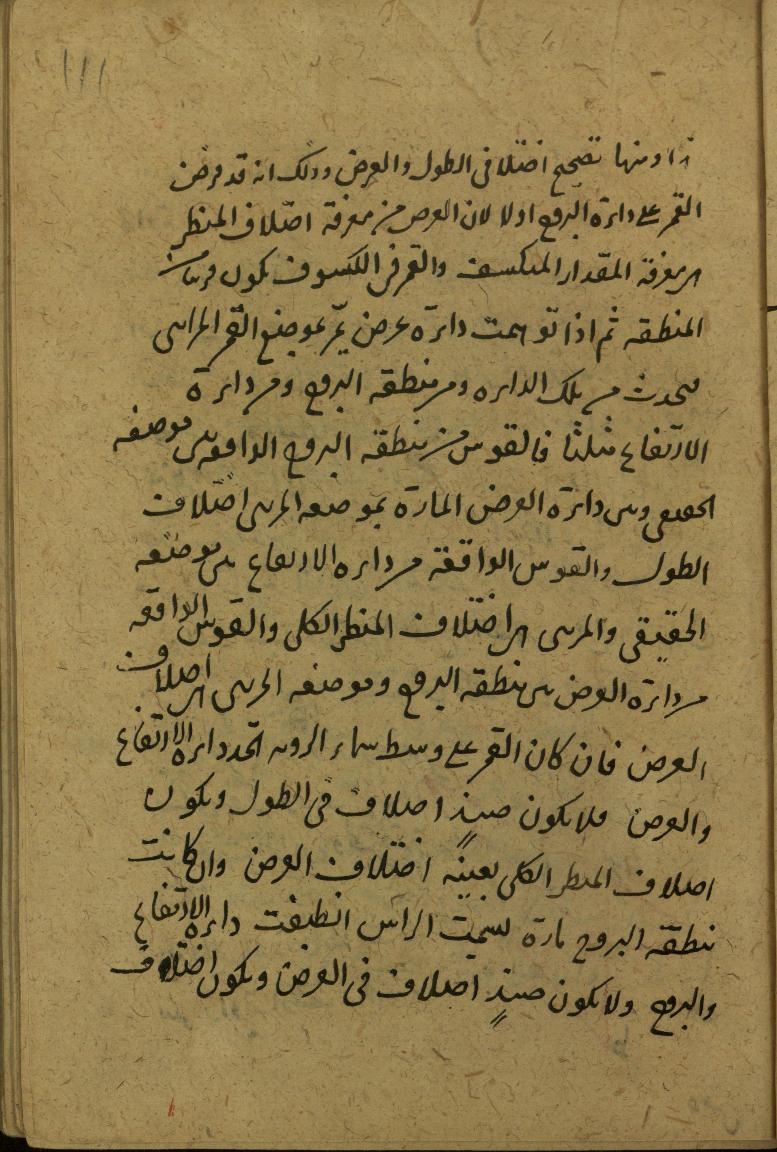 ١١١
ومنها تصحيح اختلافى الطول والعرض وذلك انه قد فرض
القمر على دائرة البروج اولا لان العرض من معرفة اختلاف المنظر
معرفة المقدار المنكسف والقمر فى الكسوف يكون
المنطقه ثم اذا توهمت دائرة عرض يمر بموضع القمر المراى
يحدث من تلك الدايره ومن منطقه البروج ومن دائرة
الارتفاع مثلثا فالقوس من منطقة البروج الواقعه بين موضعه
الحقيقى وبين دائرة العرض المارة بموضعه المرىى اختلاف
الطول والقوس الواقعة من دايره الارتفاع بين موضعه
الحقيقى والمرىى اختلاف المنظر الكلى والقوس الواقعه
من دائرة العرض بين منطقه البروج وموضعه المرىى اختلاف
العرض فان كان القمر على وسط سماء الرويه اتحد دايرة الارتفاع
والعرض فلا يكون حينئذ اختلاف فى الطول ويكون
اختلاف المنظر الكلى بعينه اختلاف العرض وان كانت
منطقة البروج مارة بسمت الراس انطبقت دايرة الارتفاع
والبروج ولا يكون حينئذ اختلاف فى العرض ويكون اختلاف